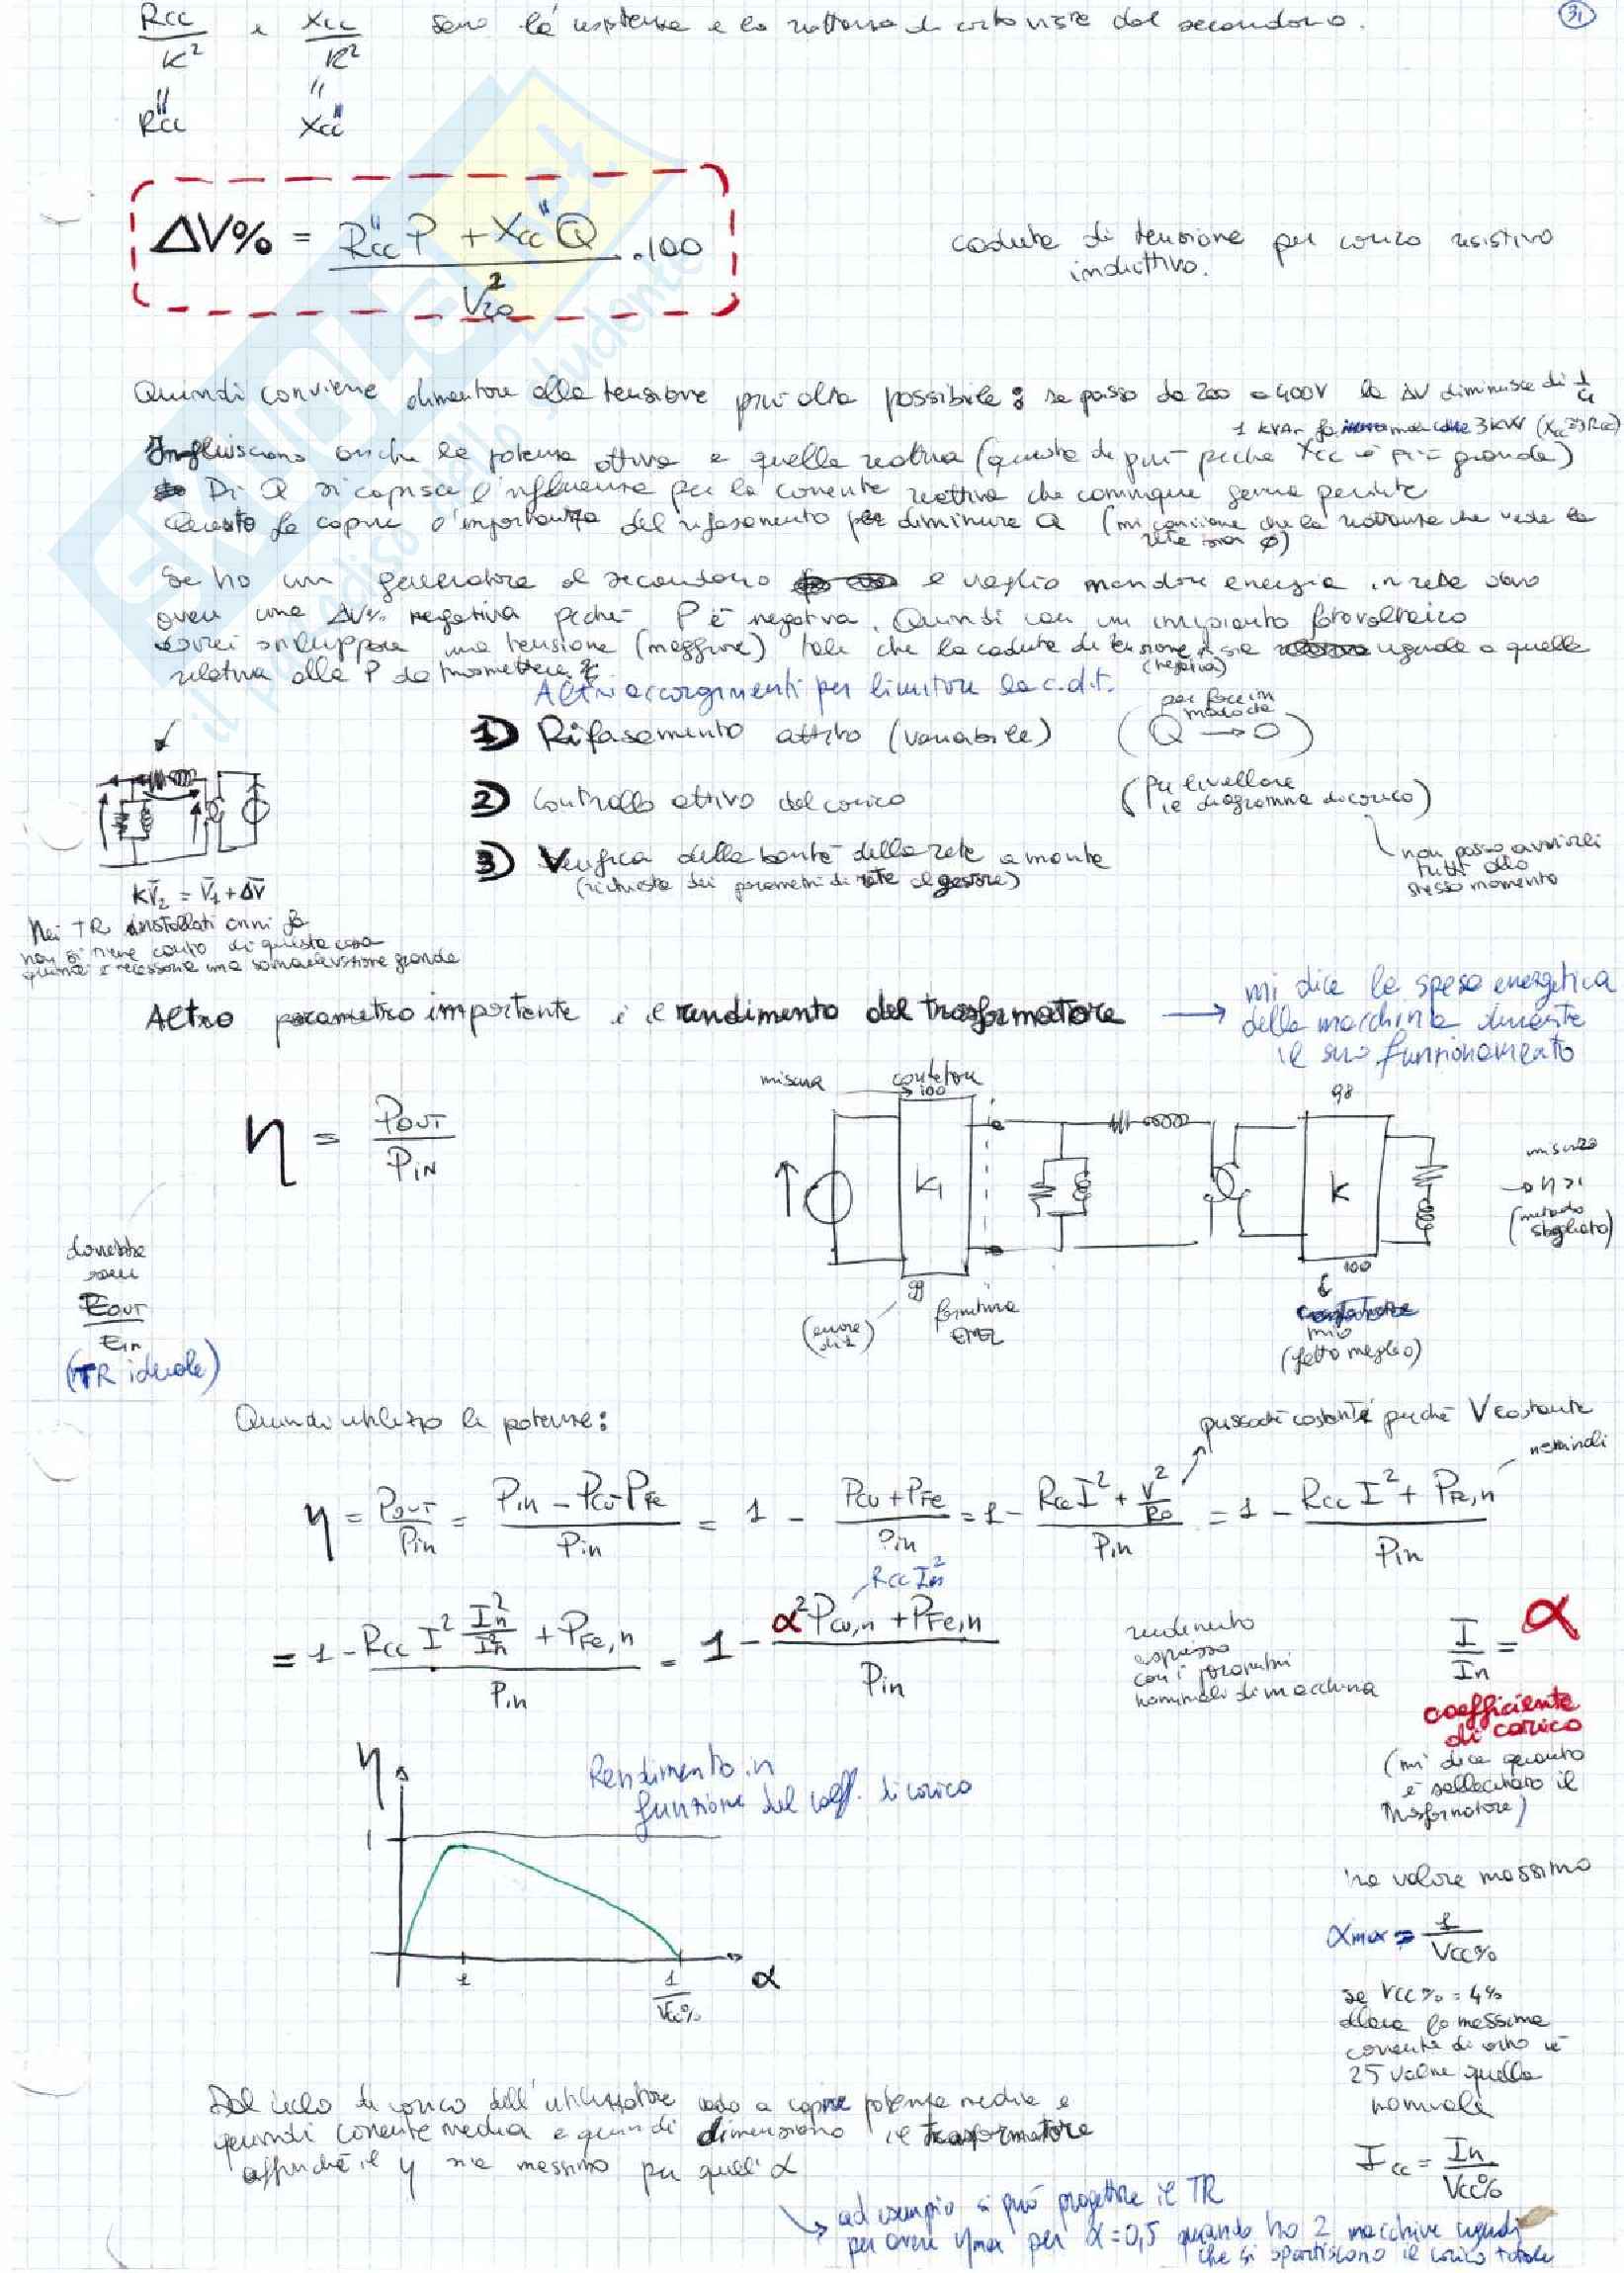 31
Rcc/K² e Xcc/K² sono la resistenza e la reattanza di corto viste dal secondario.
" "
Rcc" Xcc"
ΔV% = (Rcc" P + Xcc" Q)/V₂₀² · 100
caduta di tensione per carico resistivo
induttivo.
Quindi conviene alimentare alla tensione più alta possibile: se passo da 200 a 400V la ΔV diminuisce di 1/4
1 kVAr fa come 3kW (Xcc=3Rcc)
Influiscono anche la potenza attiva e quella reattiva (questa di più perché Xcc è più grande)
Di Q si capisce l'influenza per la corrente reattiva che comunque genera perdite
Questo fa capire l'importanza del rifasamento per diminuire Q (mi conviene che la reattanza che vede la
rete sia ø)
Se ho un generatore al secondario e voglio mandare energia in rete devo
avere una ΔV% negativa perché P è negativa. Quindi con un impianto fotovoltaico
dovrei sviluppare una tensione (maggiore) tale che la caduta di tensione sia uguale a quella
(negativa)
relativa alla P da trasmettere.
Altri accorgimenti per limitare la c.d.t.
1) Rifasamento attivo (variabile) (per fare in modo che Q → 0)
2) Controllo attivo del carico (Per livellare
il diagramma di carico)
non posso avviarli
tutti allo
stesso momento
3) Verifica della bontà della rete a monte
(richiesta dei parametri di rete al gestore)
KV̄₂ = V̄₁ + ΔV̄
Nei TR installati anni fa
non si tiene conto di questa cosa
quindi è necessaria una sopraelevazione grande
Altro parametro importante è il rendimento del trasformatore → mi dice la spesa energetica
della macchina durante
il suo funzionamento
η = POUT/PIN
misura
contatore
100
K₁
99
(errore
di 1)
fornitura
ENEL
98
K
100
mio
(fatto meglio)
misura
→ η>1
(metodo
sbagliato)
dovrebbe
essere
EOUT/Ein
(TR ideale)
Quindi utilizzo le potenze:
pressoché costante perché V costante
nominali
η = POUT/Pin = (Pin - PCu - PFe)/Pin = 1 - (PCu + PFe)/Pin = 1 - (Rcc I² + V²/R0)/Pin = 1 - (Rcc I² + PFe,n)/Pin
Rcc In²
= 1 - (Rcc I² In²/In² + PFe,n)/Pin = 1 - (α² PCu,n + PFe,n)/Pin
rendimento
espresso
con i parametri
nominali di macchina
I/In = α
coefficiente
di carico
(mi dice quanto
è sollecitato il
trasformatore)
η
1
Rendimento in
funzione del coeff. di carico
1
1/Vcc%
α
ha valore massimo
αmax = 1/Vcc%
se Vcc% = 4%
allora la massima
corrente di corto è
25 volte quella
nominale
Icc = In/Vcc%
Dal ciclo di carico dell'utilizzatore vado a capire potenza media e
quindi corrente media e quindi dimensiono il trasformatore
affinché il η sia massimo per quell'α
ad esempio si può progettare il TR
per avere ηmax per α=0,5 quando ho 2 macchine uguali
che si spartiscono il carico totale